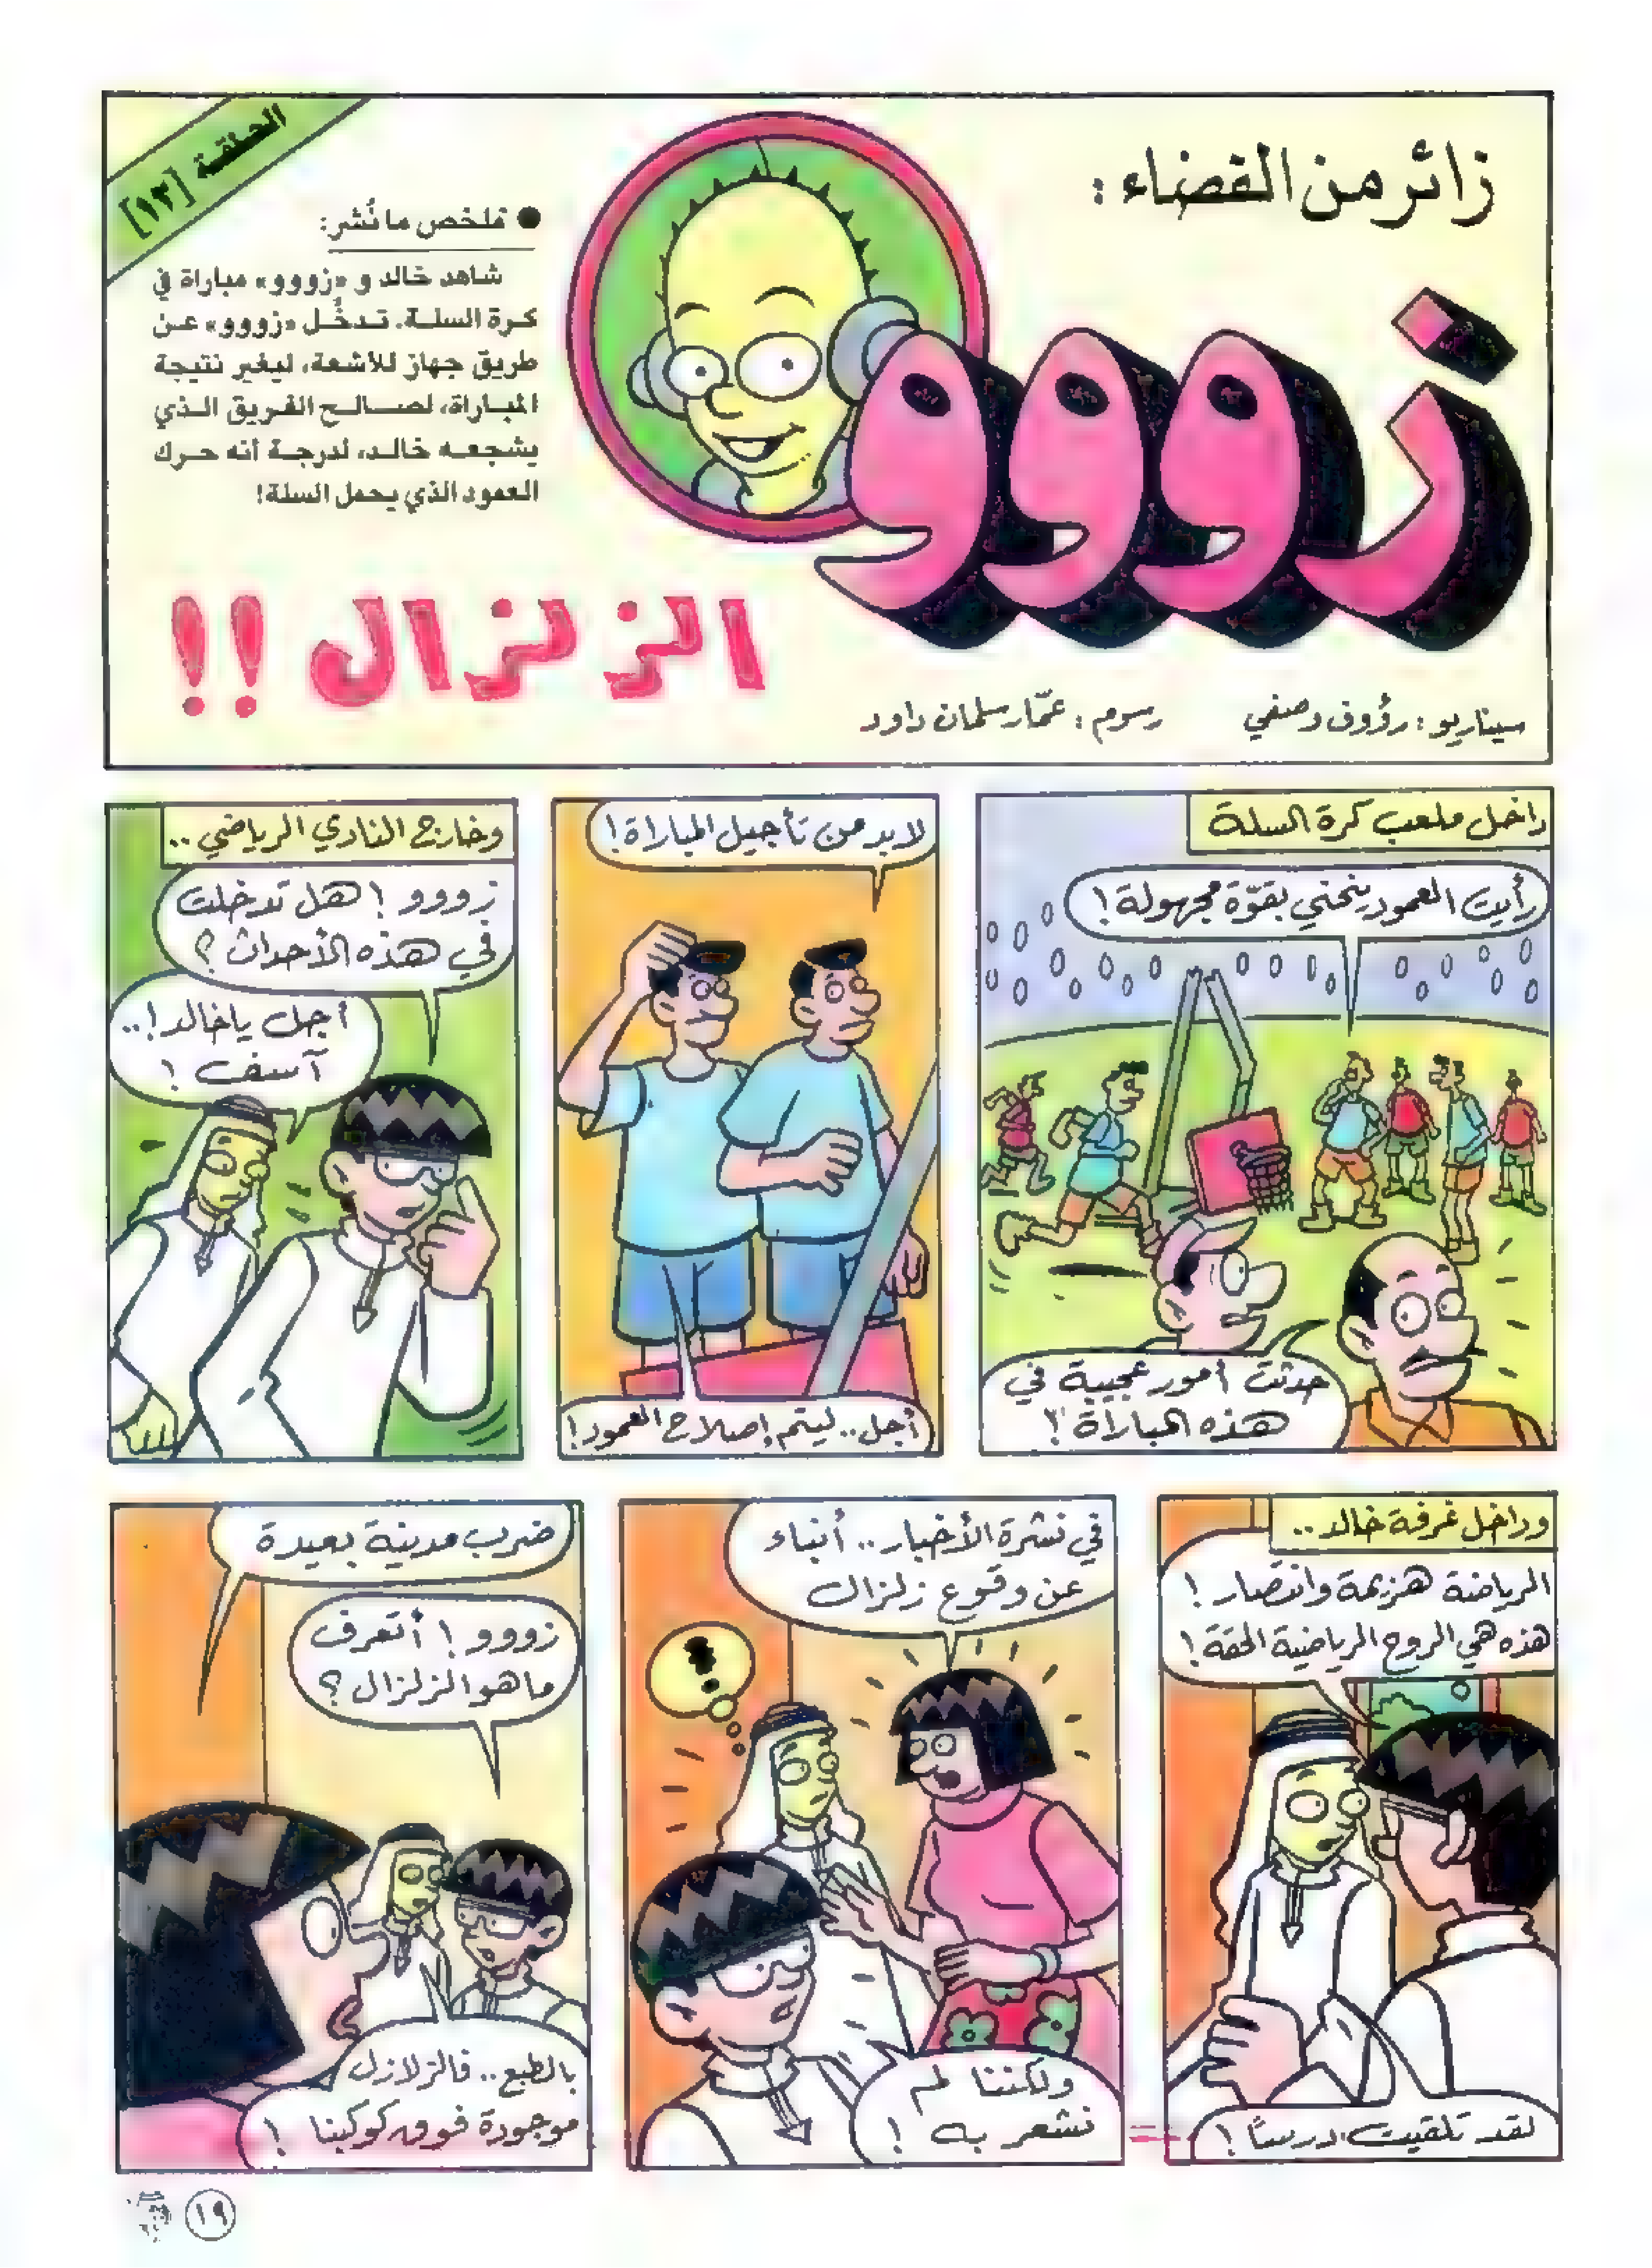 زائر من الفضاء:
زووو
الحلقة [١٣]
● ملخص ما نُشر:
شاهد خالد و «زووو» مباراة في
كرة السلة. تدخُّل «زووو» عن
طريق جهاز للأشعة، ليغير نتيجة
المباراة، لصالح الفريق الذي
يشجعه خالد، لدرجة أنه حرك
العمود الذي يحمل السلة!
الزلزال !!
سيناريو: رؤوف وصفي
رسوم: عمّار سلمان داود
داخل ملعب كرة السلة
رأيت العمود ينحني بقوّة مجهولة!
حدثت أمور عجيبة في
هذه المباراة!
لابد من تأجيل المباراة!
أجل.. ليتم إصلاح العمود!
وخارج النادي الرياضي..
زووو! هل تدخلت
في هذه الأحداث؟
أجل ياخالد!..
آسف!
وداخل غرفة خالد..
الرياضة هزيمة وانتصار!
هذه هي الروح الرياضية الحقة!
لقد تلقيت درسًا!
في نشرة الأخبار.. أنباء
عن وقوع زلزال
ولكننا لم
نشعر به!
ضرب مدينة بعيدة
زووو! أتعرف
ماهو الزلزال؟
بالطبع.. فالزلازل
موجودة فوق كوكبنا!
١٩